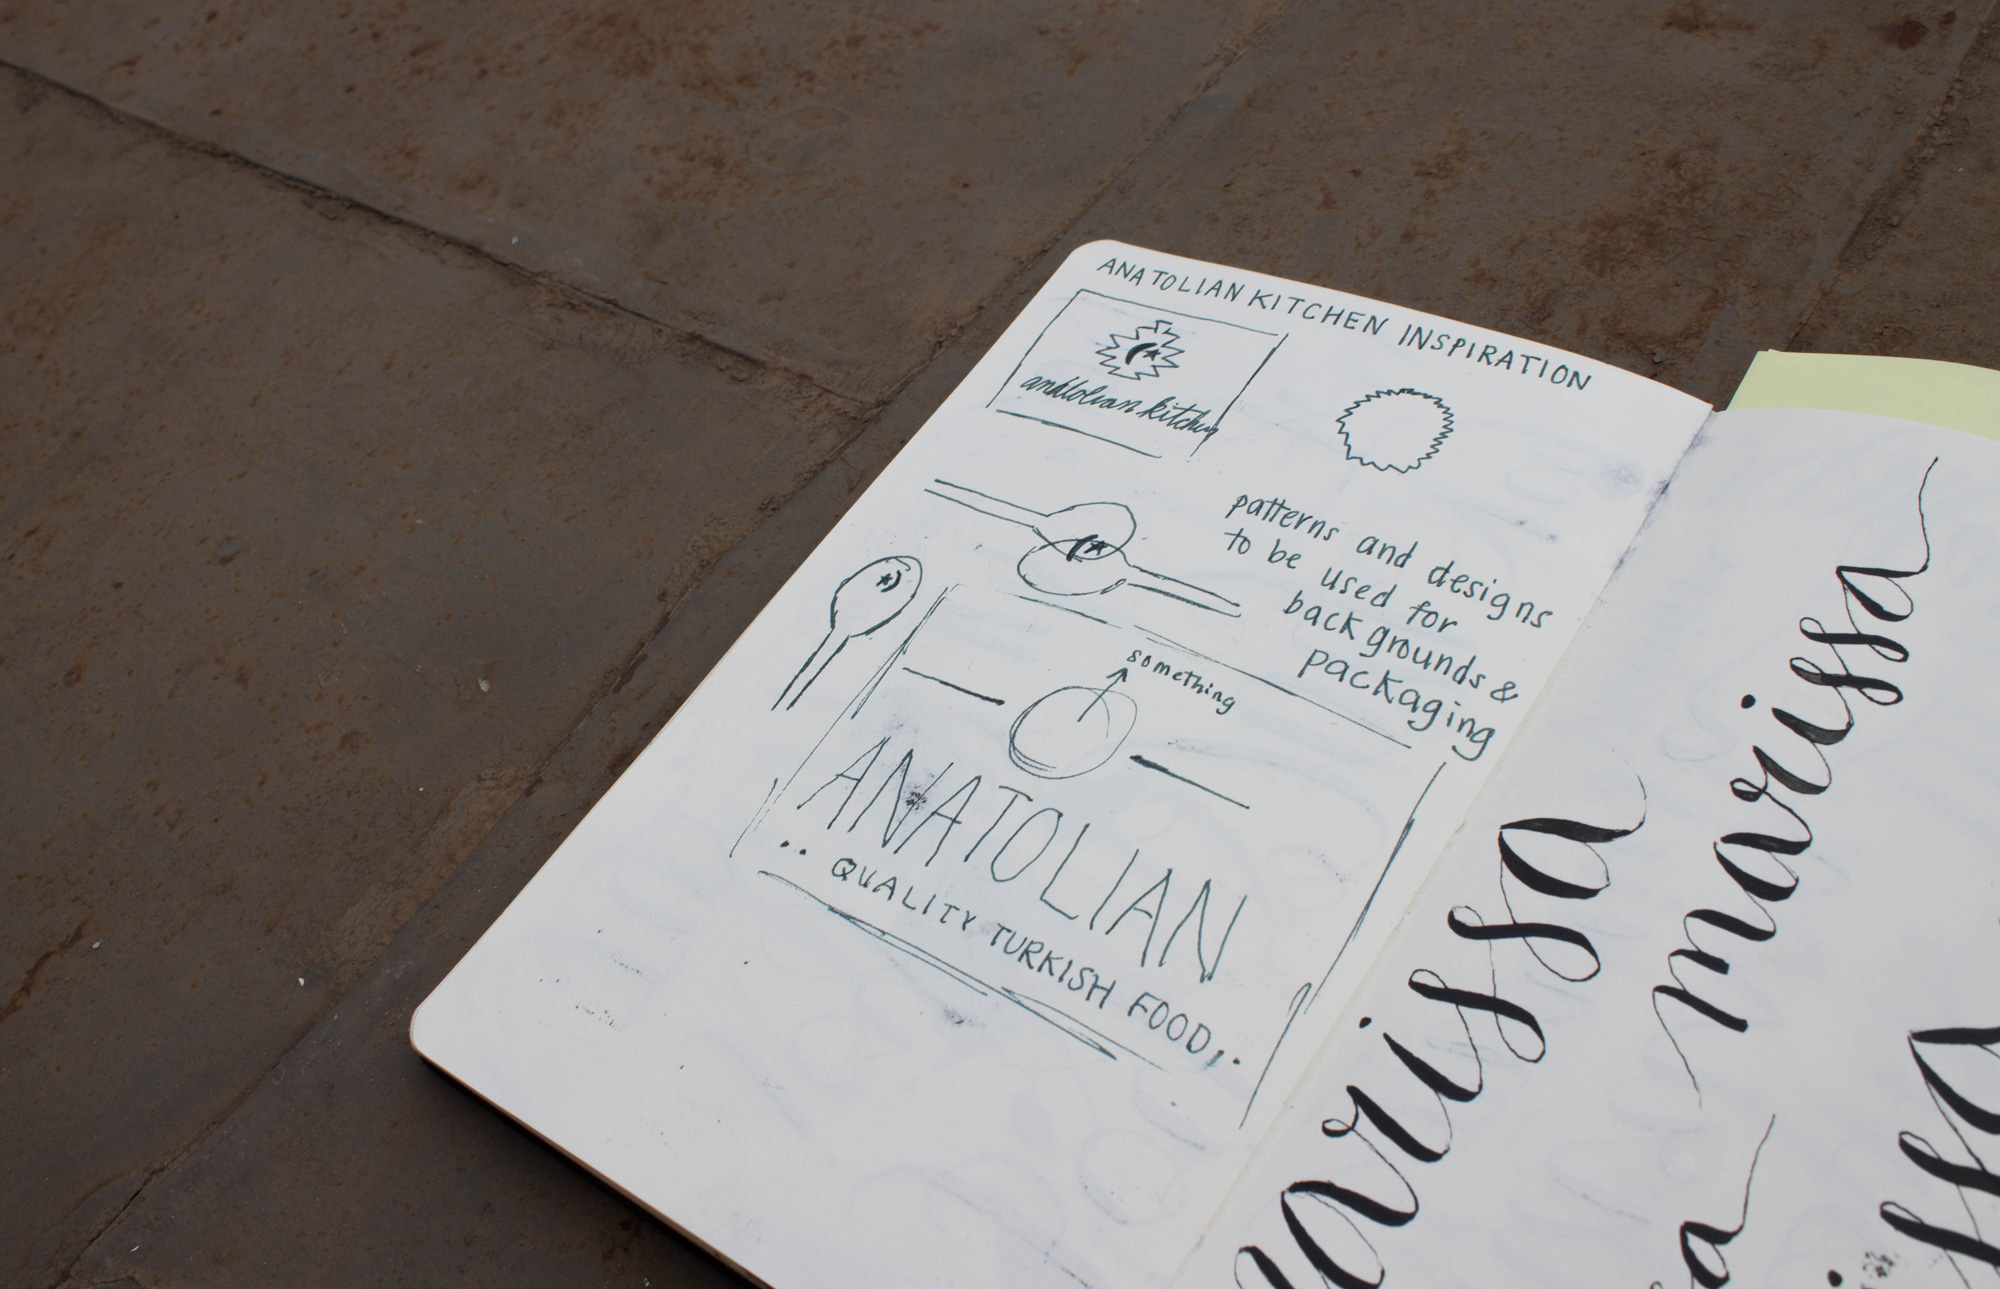 ANATOLIAN KITCHEN INSPIRATION
anatolian kitchen
patterns and designs
to be used for
backgrounds &
packaging
something
ANATOLIAN
.. QUALITY TURKISH FOOD ..
marissa
arissa